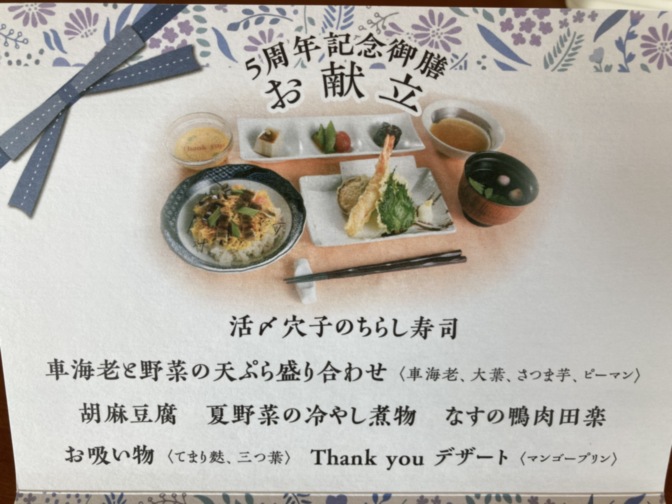 5周年記念御膳
お献立
活〆穴子のちらし寿司
車海老と野菜の天ぷら盛り合わせ〈車海老、大葉、さつま芋、ピーマン〉
胡麻豆腐　夏野菜の冷やし煮物　なすの鴨肉田楽
お吸い物〈てまり麩、三つ葉〉　Thank you デザート〈マンゴープリン〉
Thank you